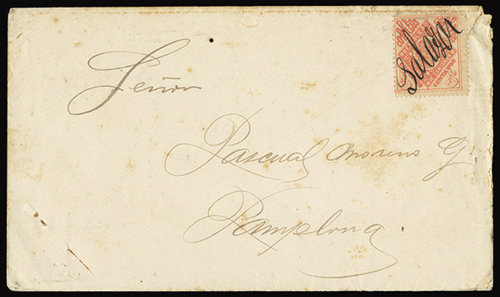 Salazar
Señor
Pascual Moreno G.
Pamplona.